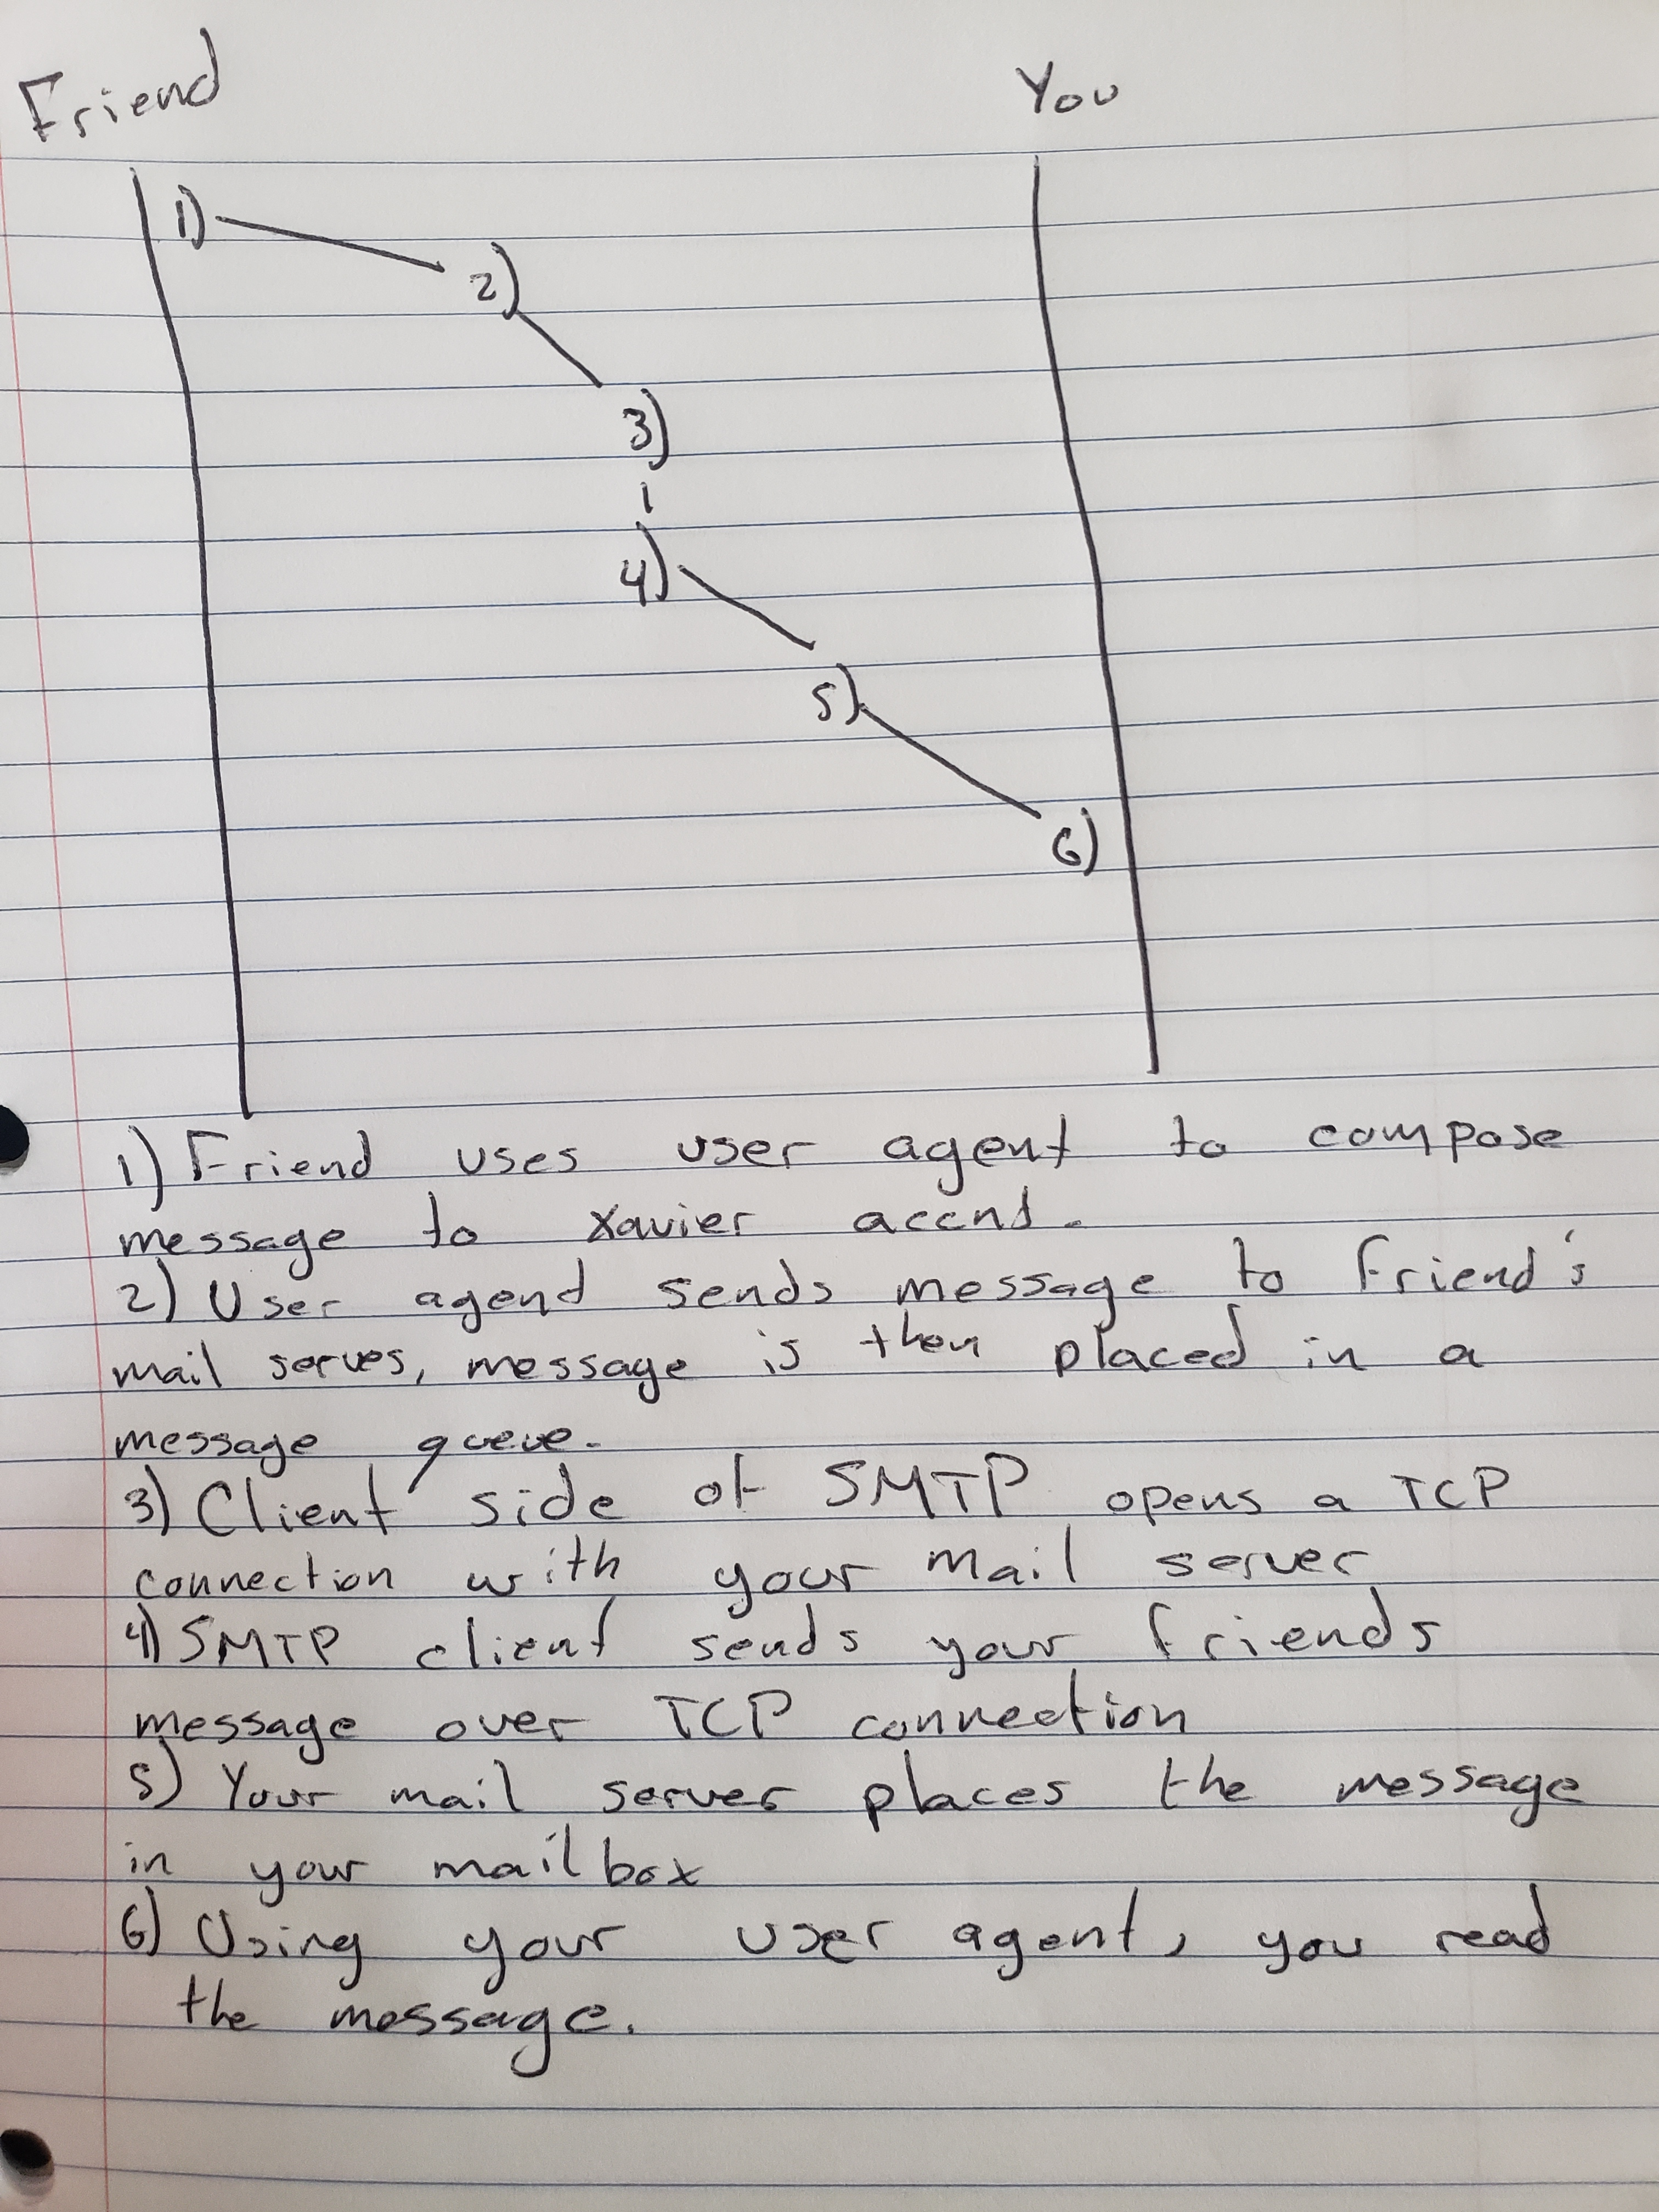 Friend You
1)
2)
3)
4)
5)
6)
1) Friend uses user agent to compose
message to Xavier accnt.
2) User agend sends message to friend's
mail serves, message is then placed in a
message queue.
3) Client side of SMTP opens a TCP
connection with your mail server
4) SMTP client sends your friends
message over TCP connection
5) Your mail server places the message
in your mailbox
6) Using your user agent, you read
the message.